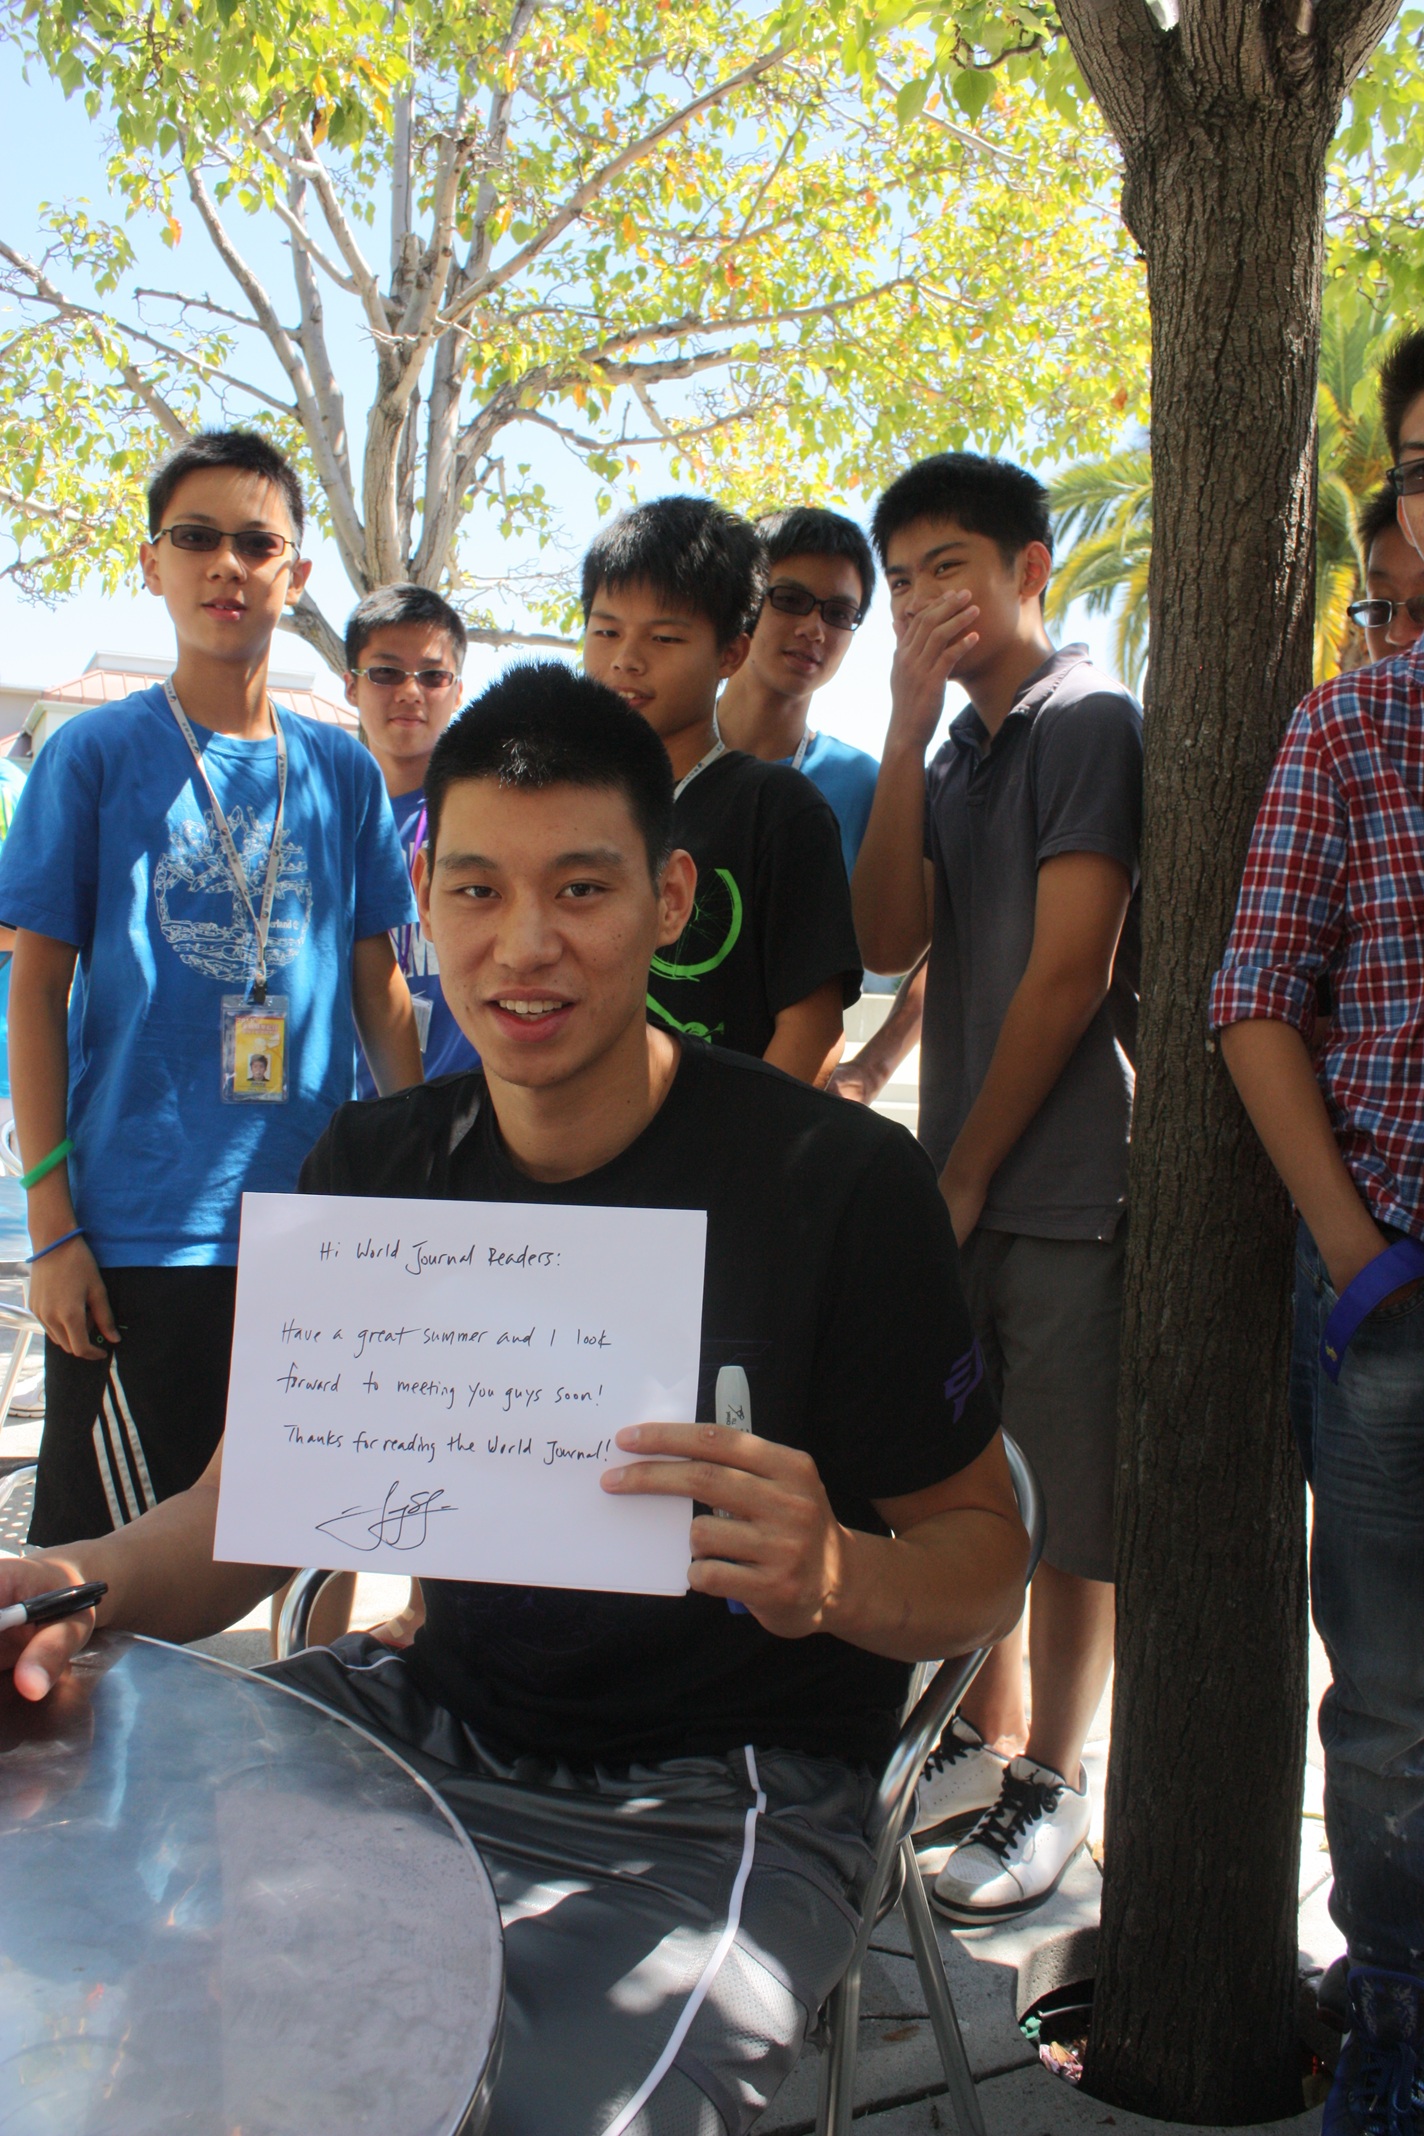 Hi World Journal Readers:
Have a great summer and I look
forward to meeting you guys soon!
Thanks for reading the World Journal!